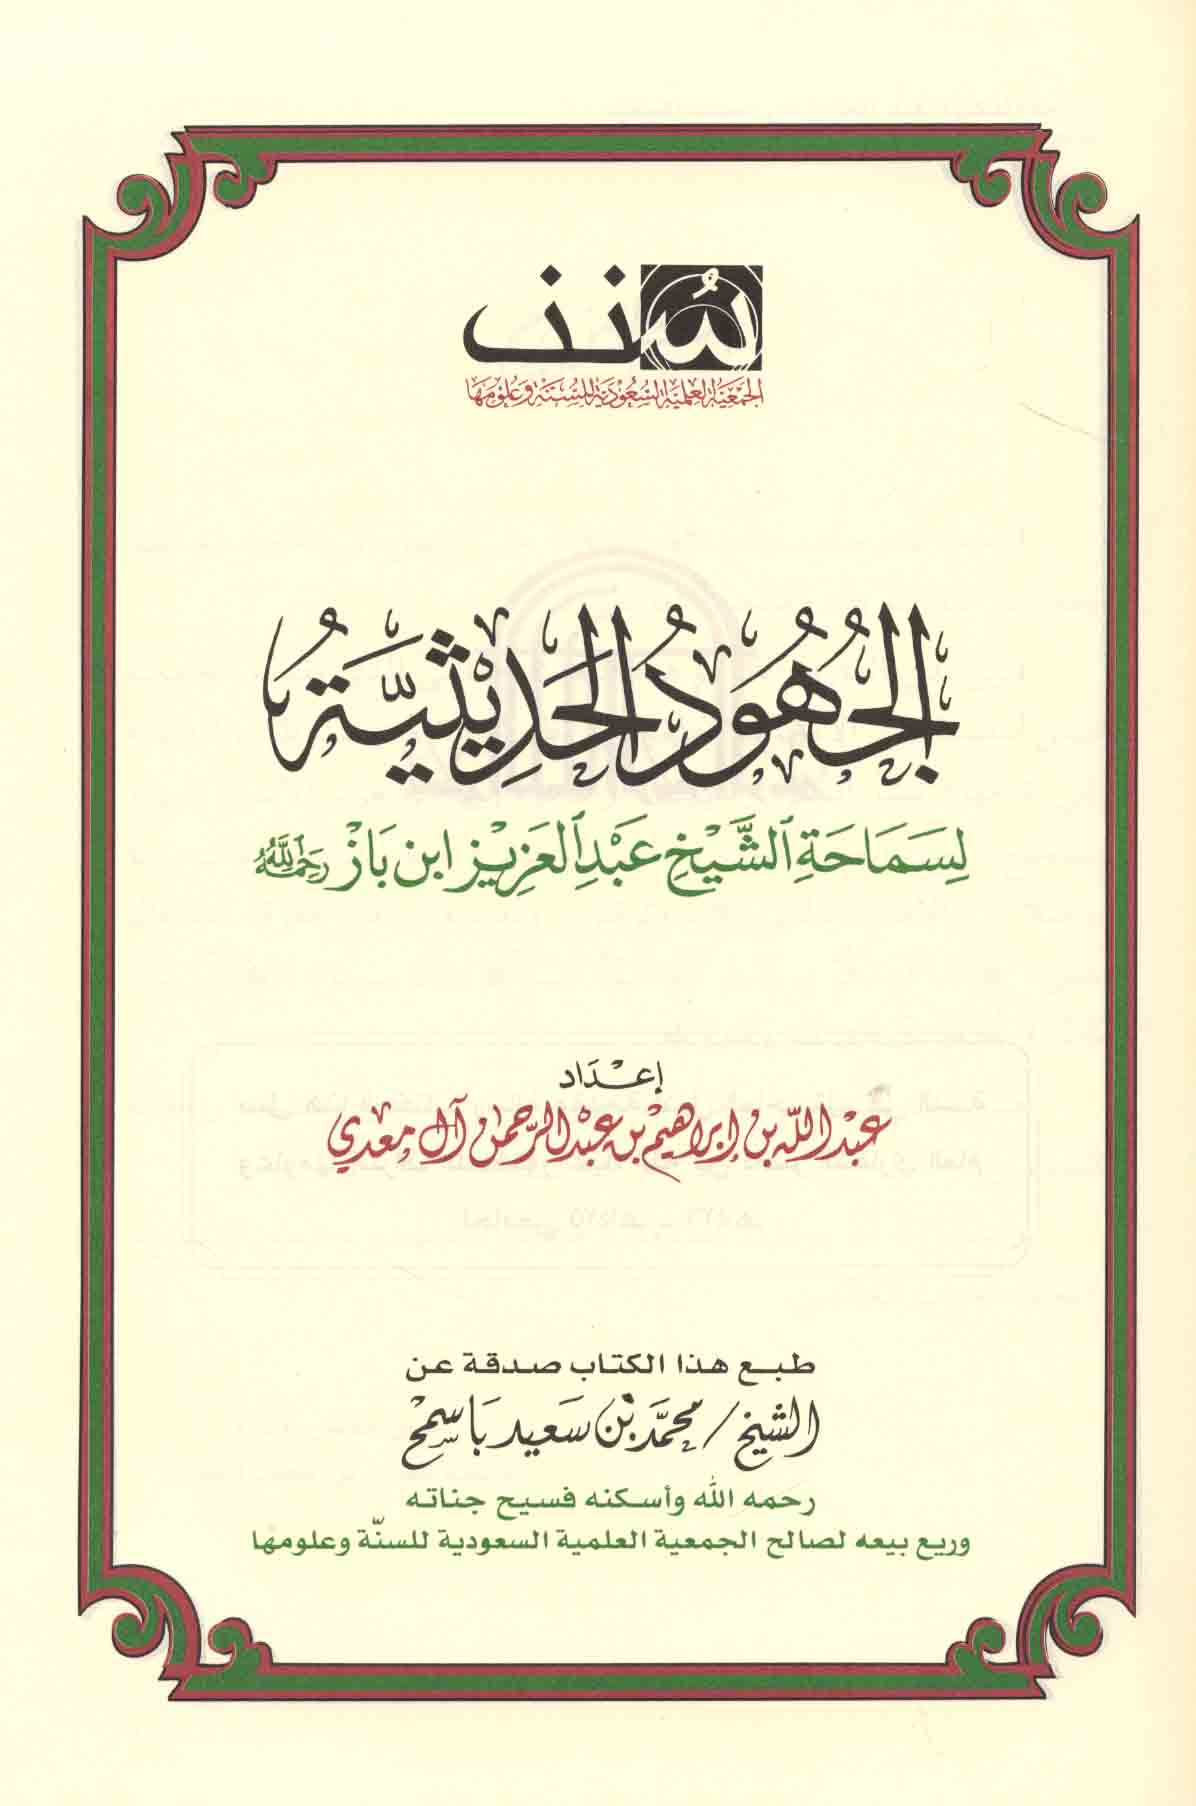 سنن
الجمعية العلمية السعودية للسنة وعلومها
الجُهُودُ الحَدِيثِيَّةُ
لِسَمَاحَةِ الشَّيْخِ عَبْدِ العَزِيزِ ابن بَازْ رَحِمَهُ اللَّهُ
إعْدَاد
عبد الله بن إبراهيم بن عبد الرحمن آل معدي
طبع هذا الكتاب صدقة عن
الشيخ / محمد بن سعيد باسمح
رحمه الله وأسكنه فسيح جناته
وريع بيعه لصالح الجمعية العلمية السعودية للسنّة وعلومها